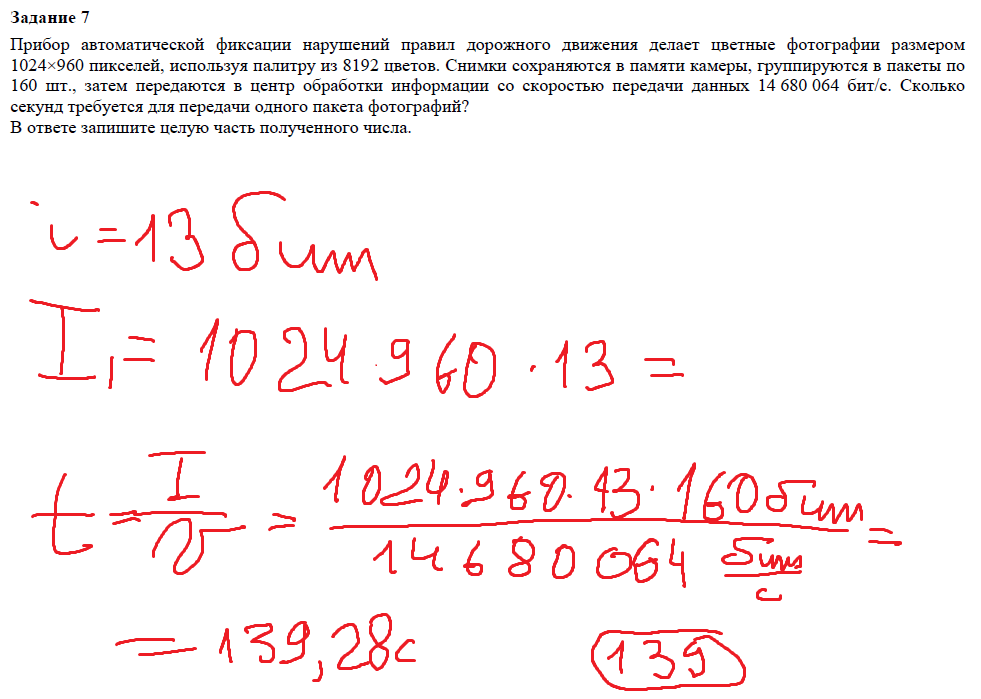 Задание 7
Прибор автоматической фиксации нарушений правил дорожного движения делает цветные фотографии размером
1024×960 пикселей, используя палитру из 8192 цветов. Снимки сохраняются в памяти камеры, группируются в пакеты по
160 шт., затем передаются в центр обработки информации со скоростью передачи данных 14 680 064 бит/с. Сколько
секунд требуется для передачи одного пакета фотографий?
В ответе запишите целую часть полученного числа.
i = 13 бит
I₁ = 1024 · 960 · 13 =
t = I / v = 1024 · 960 · 13 · 160 бит / 14680064 бит/с =
= 139,28 с 139